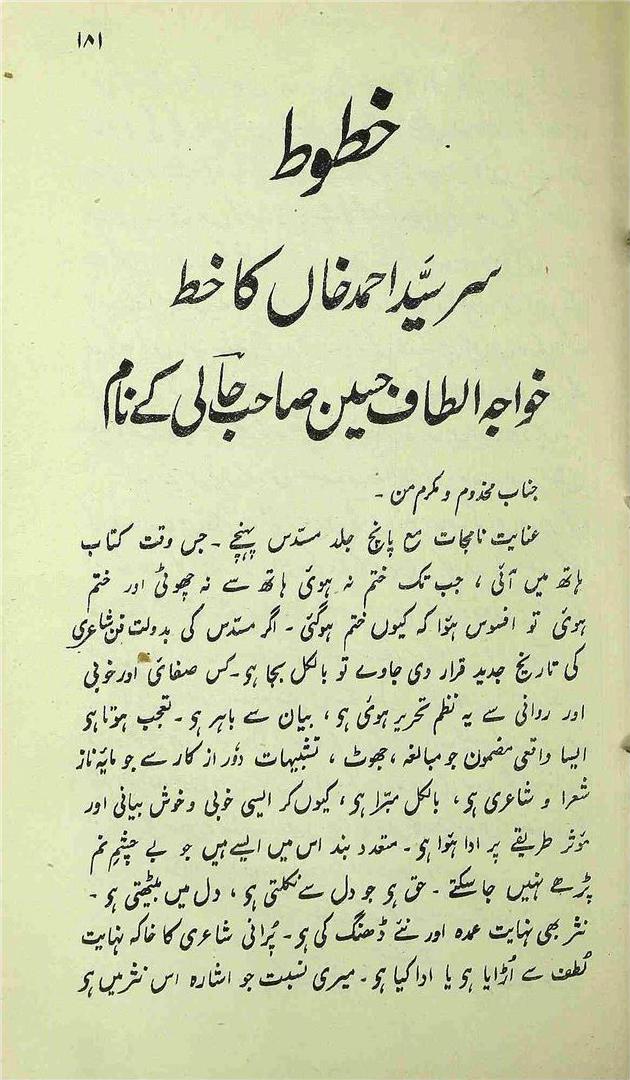 ۱۸۱
خطوط
سر سیّد احمد خاں کا خط
خواجہ الطاف حسین صاحب حالی کے نام
جناب مخدوم و مکرم من ۔
عنایت نامجات مع پانچ جلد مسدّس پہنچے ۔ جس وقت کتاب
ہاتھ میں آئی ، جب تک ختم نہ ہوئی ہاتھ سے نہ چھوٹی اور ختم
ہوئی تو افسوس ہوا کہ کیوں ختم ہوگئی ۔ اگر مسدّس کی بدولت فن شاعری
کی تاریخ جدید قرار دی جاوے تو بالکل بجا ہی ۔ کس صفائی اور خوبی
اور روانی سے یہ نظم تحریر ہوئی ہی ، بیان سے باہر ہی ۔ تعجب ہوتا ہی
ایسا واقعی مضمون جو مبالغہ ، جھوٹ ، تشبیہات دُور از کار سے جو مایۂ ناز
شعرا و شاعری ہی ، بالکل مبرّا ہی ، کیوں کر ایسی خوبی و خوش بیانی اور
مؤثر طریقے پر ادا ہوا ہی ۔ متعدد بند اس میں ایسے ہیں جو بے چشمِ نم
پڑھے نہیں جا سکتے ۔ حق ہی جو دل سے نکلتی ہی ، دل میں بیٹھتی ہی ۔
نثر بھی نہایت عمدہ اور نئے ڈھنگ کی ہی ۔ پُرانی شاعری کا خاکہ نہایت
لُطف سے اُڑایا ہی یا ادا کیا ہی ۔ میری نسبت جو اشارہ اس نثر میں ہی